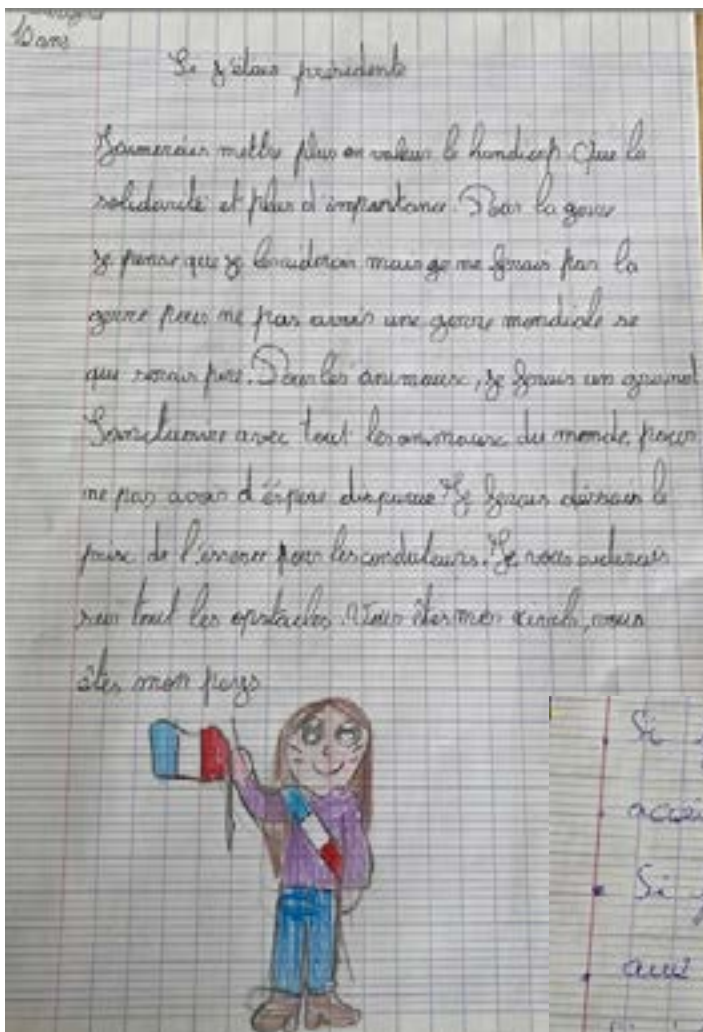 10 ans
Si j'étais présidente
J'aimerais mettre plus en valeur le handicap. Que la
solidarité et plus d'importance. Pour la gerre
je pense que je les aiderai mais je ne ferais pas la
gerre pour ne pas avoir une gerre mondiale se
que serais pire. Pour les animaux, je ferais un grand
Sanctuaire avec tout les animaux du monde, pour
ne pas avoir d'éspese disparue. Je ferais déssendre le
prix de l'essence pour les conducteurs. Je vous aiderais
sur tout les opstacles. Vous êtes mon vous
êtes mon pays
Si
Si